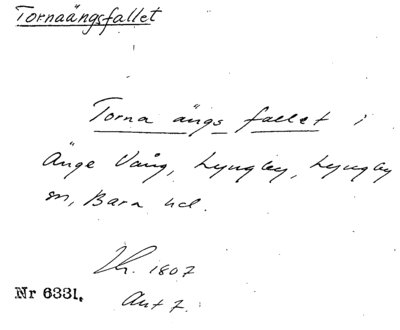 Tornaängsfallet
Torna ängs fallet i
Änge Vång, Lyngby, Lyngby
sn, Bara hd.
Lh. 1807
Nr 6331.
Akt 7.